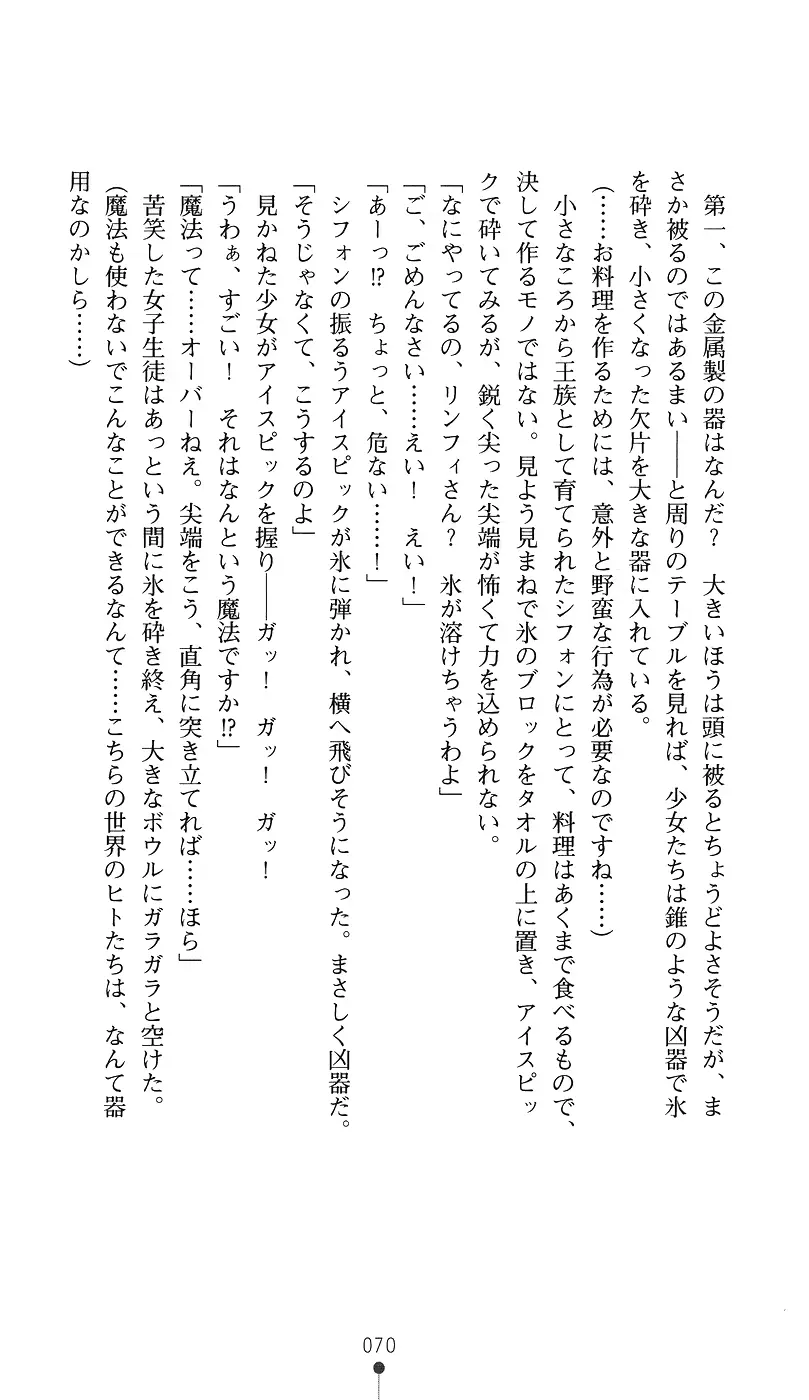 第一、この金属製の器はなんだ？　大きいほうは頭に被るとちょうどよさそうだが、ま
さか被るのではあるまい――と周りのテーブルを見れば、少女たちは錐のような凶器で氷
を砕き、小さくなった欠片を大きな器に入れている。
（……お料理を作るためには、意外と野蛮な行為が必要なのですね……）
　小さなころから王族として育てられたシフォンにとって、料理はあくまで食べるもので、
決して作るモノではない。見よう見まねで氷のブロックをタオルの上に置き、アイスピッ
クで砕いてみるが、鋭く尖った尖端が怖くて力を込められない。
「なにやってるの、リンフィさん？　氷が溶けちゃうわよ」
「ご、ごめんなさい……えい！　えい！」
「あーっ!?　ちょっと、危ない……！」
　シフォンの振るうアイスピックが氷に弾かれ、横へ飛びそうになった。まさしく凶器だ。
「そうじゃなくて、こうするのよ」
　見かねた少女がアイスピックを握り――ガッ！　ガッ！　ガッ！
「うわぁ、すごい！　それはなんという魔法ですか!?」
「魔法って……オーバーねえ。尖端をこう、直角に突き立てれば……ほら」
　苦笑した女子生徒はあっという間に氷を砕き終え、大きなボウルにガラガラと空けた。
（魔法も使わないでこんなことができるなんて……こちらの世界のヒトたちは、なんて器
用なのかしら……）
070